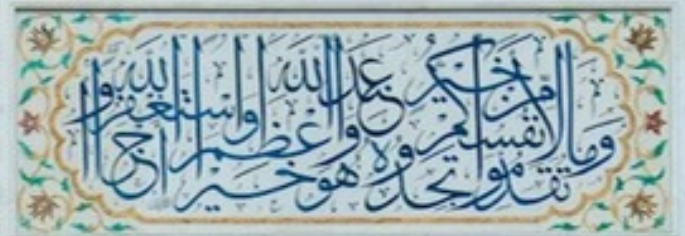 وما تقدموا لانفسكم من خير تجدوه عند الله هو خيرا واعظم اجرا واستغفروا الله